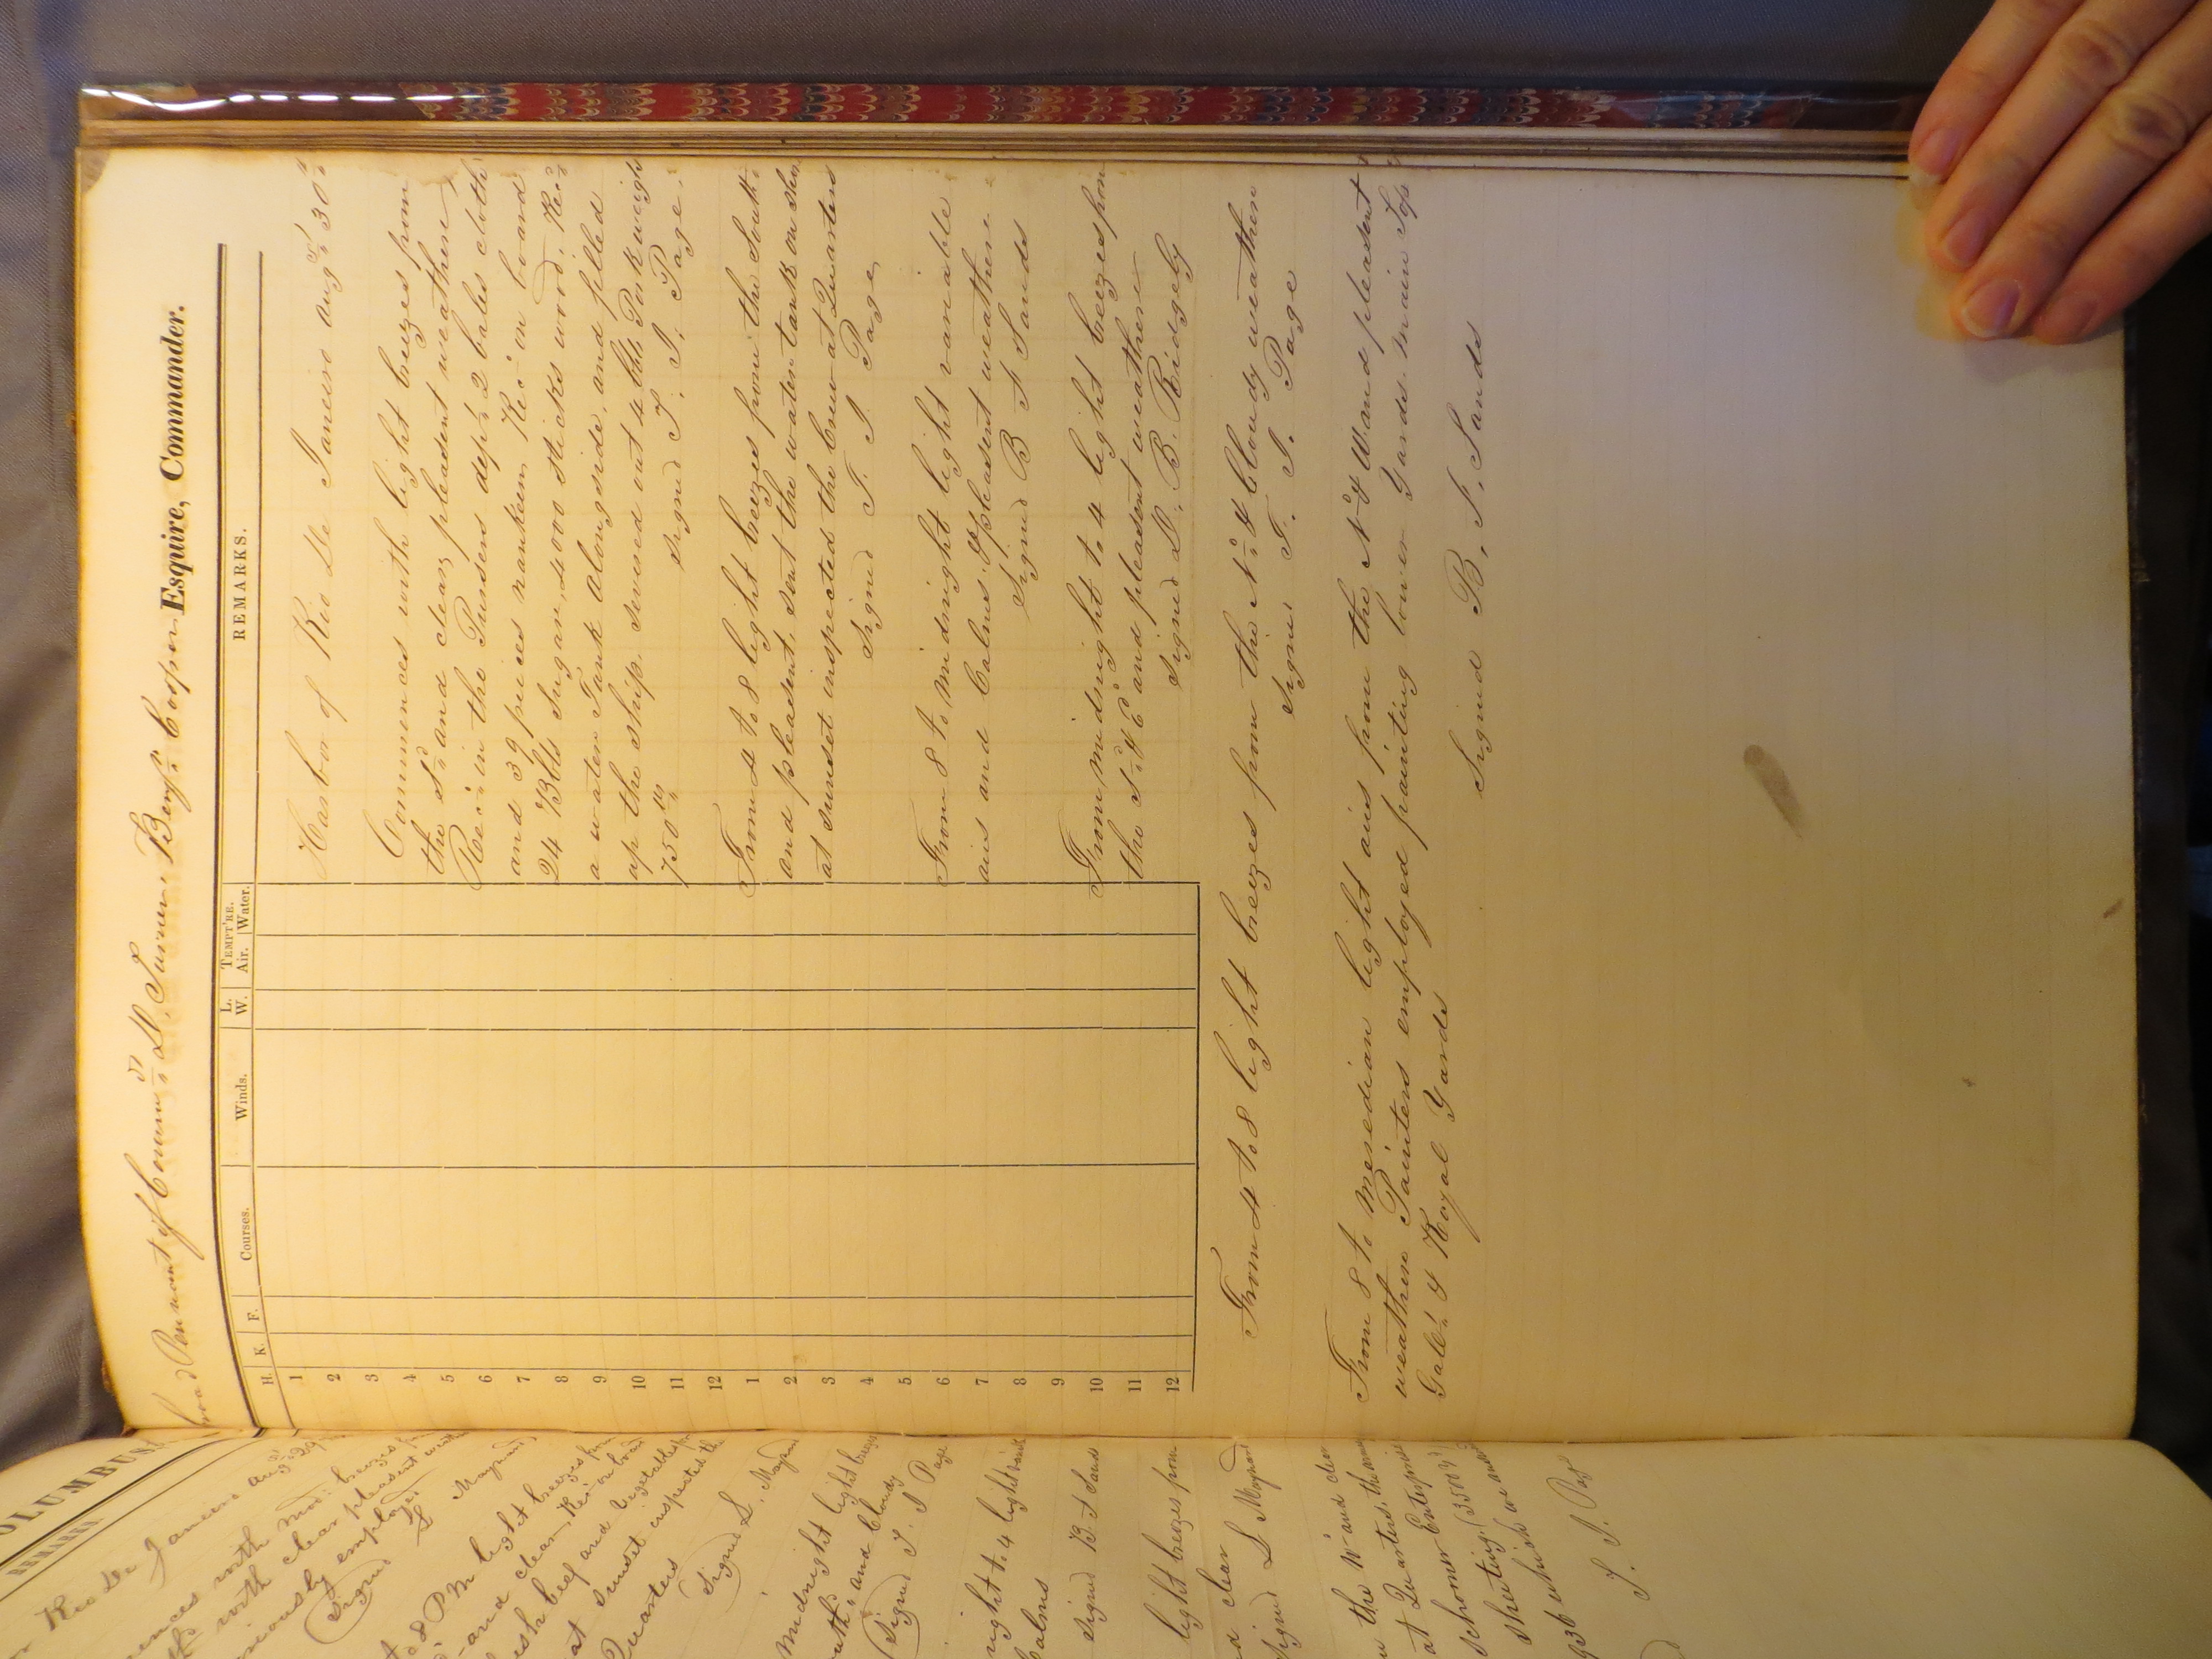 OLUMBUS,
REMARKS.
Rio De Janeiro Aug 29
mences with mod: breezes
with clear pleasant weath
employed
Signed S Maynard
8 P M light breezes from
and clear, Rec on board
esh beef and vegetables
at Sunset inspected the
Quarters
Signed S. Maynard
Midnight light breezes
and Cloudy
Signed T. J Page
night to 4 light
Calms
Signed B F Sands
light breezes from
d clear
Signed S Maynard
the W and clear
at Quarters, the
schooner Enterprise
sheeting, (3500
936 which we
T. J. Page
road Pennant of Comm:dr D. Turner, Benj:n Cooper Esquire, Commander.
H. K. F. Courses. Winds. L. W. TEMPT'RE. Air. Water. REMARKS.
1
2
3
4
5
6
7
8
9
10
11
12
1
2
3
4
5
6
7
8
9
10
11
12
Harbor of Rio De Janeiro Aug:st 30:
Commences with light breezes from
the S:d and clear, pleasant weather
Rec:d in the Pursers dep:t 2 bales cloth
and 39 pieces nankeen Rec:d on board
24 Bbls Sugar, 4000 sticks wood. Rec:d
a water Tank alongside, and filled
up the ship. Served out 4 bbl Pork weigh
750 lbs
Signed T. J. Page.
From 4 to 8 light breezes from the South:
and pleasant, sent the water tank on shore
at sunset inspected the Crew at Quarters
Signed T. J. Page,
From 8 to Midnight light variable
airs and Calms. & pleasant weather
Signed B F Sands
From Midnight to 4 light breezes from
the S:d & E and pleasant weather
Signed D. B. Ridgely
From 4 to 8 light breezes from the N:d & Cloudy weather
Signed T. J. Page
From 8 to Meredian light airs from the N:d & W. and pleasant
weather Painters employed painting lower Yards Main Top
Gall:t & Royal Yards
Signed B. F. Sands